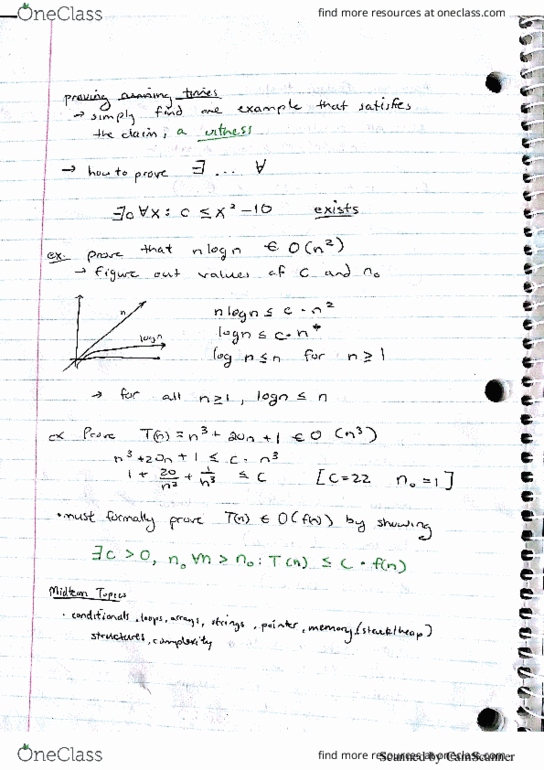 OneClass
find more resources at oneclass.com
proving running times
→ simply find one example that satisfies
the claim, a witness
→ how to prove ∃ ... ∀
∃c ∀x : c ≤ x² - 10 exists
ex. prove that n log n ∈ O(n²)
→ figure out values of c and n₀
n
log n
n log n ≤ c · n²
log n ≤ c · n
log n ≤ n for n ≥ 1
→ for all n ≥ 1, log n ≤ n
ex Prove T(n) = n³ + 20n + 1 ∈ O (n³)
n³ + 20n + 1 ≤ c · n³
1 + 20/n² + 1/n³ ≤ c [c=22 n₀=1]
• must formally prove T(n) ∈ O(f(n)) by showing
∃c > 0, n₀ ∀n ≥ n₀ : T(n) ≤ c · f(n)
Midterm Topics
• conditionals, loops, arrays, strings, pointer, memory (stack/heap)
structures, complexity
OneClass
find more resources at oneclass.com
Scanned by CamScanner